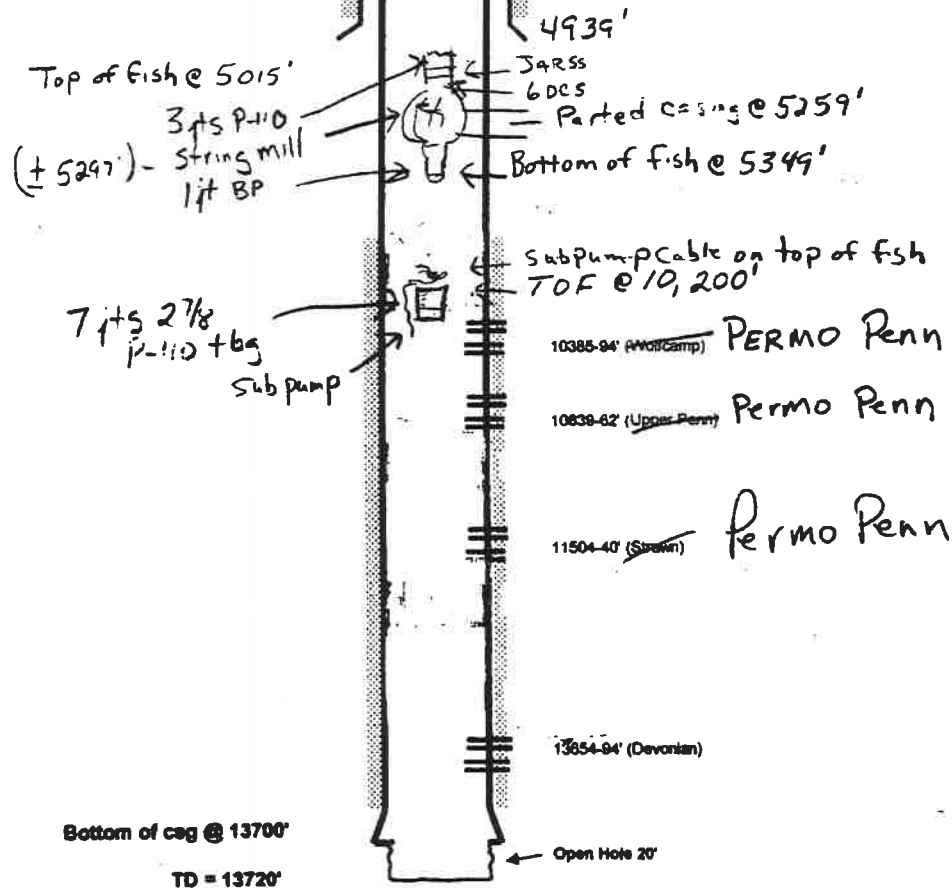 4939'
Top of fish @ 5015'
JARSS
6 DCS
3 jts P-110
Parted casing @ 5259'
(± 5297') - string mill
Bottom of fish @ 5349'
1 jt BP
subpump cable on top of fish
TOF @ 10,200'
7 jts 2 7/8
P-110 tbg
Sub pump
10385-94' (Wolfcamp) PERMO Penn
10639-62' (Upper Penn) Permo Penn
11504-40' (Strawn) Permo Penn
13654-94' (Devonian)
Bottom of csg @ 13700'
Open Hole 20'
TD = 13720'